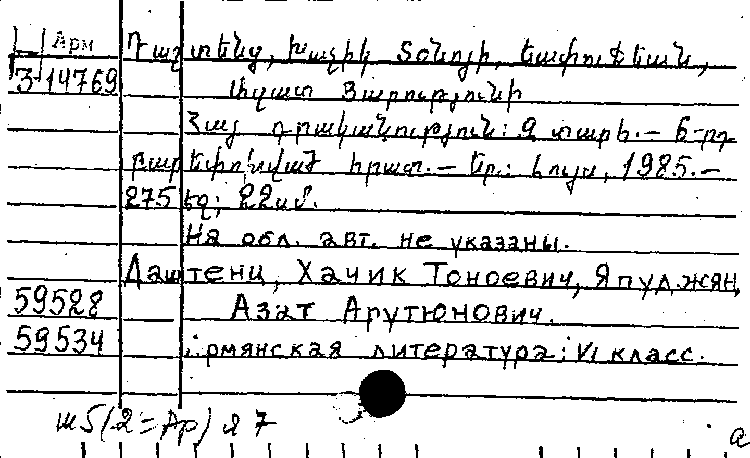 Арм Դաշտենց, Խաչիկ Տօնոյի, Եափուջեան,
3-14769 Ազատ Յարութիւնի
Հայ գրականություն: 9 տարի.— 6-րդ
բարեփոխված հրատ.— Եր.: Լույս, 1985.—
275 էջ; 22սմ.
На обл. авт. не указаны.
Даштенц, Хачик Тоноевич, Япуджян,
59528 Азат Арутюнович.
59534 Армянская литература: VI класс.
ш5(2=Ар)я7
а